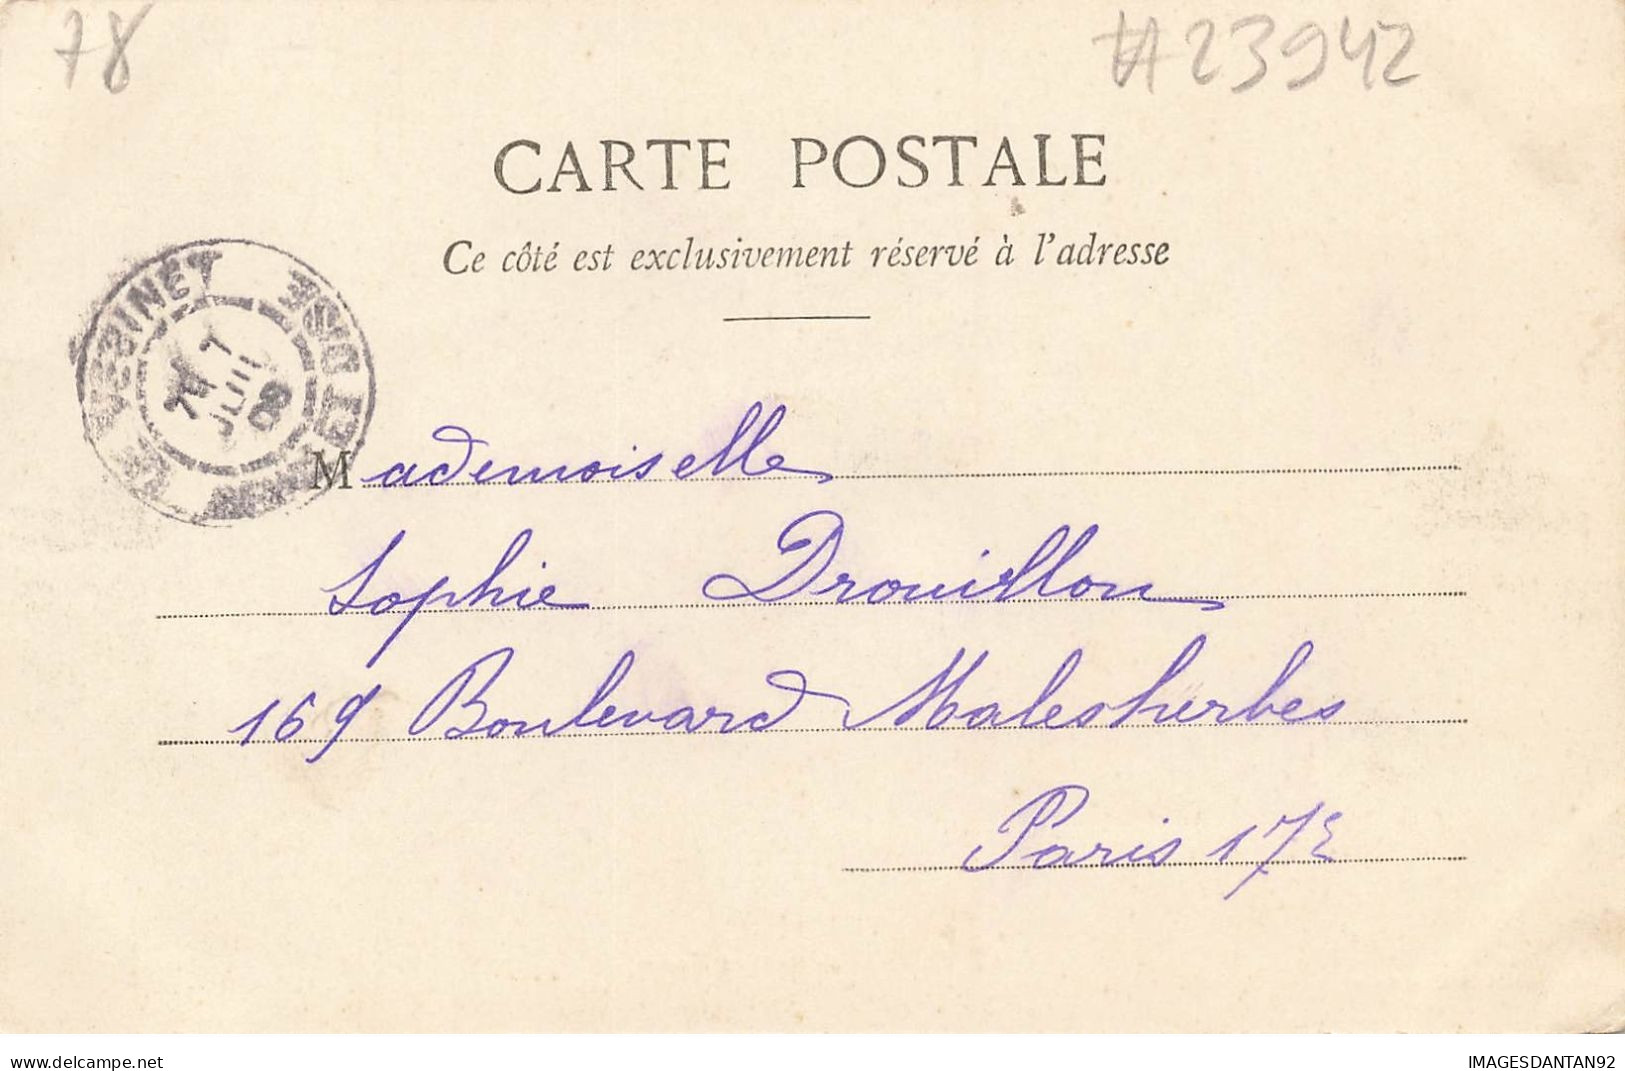 78
#23942
CARTE POSTALE
Ce côté est exclusivement réservé à l'adresse
LE VESINET
SEINE ET OISE
7
JUIL
Mademoiselle
Sophie Drouillon
169 Boulevard Malesherbes
Paris 17E
delcampe.net
IMAGESDANTAN92